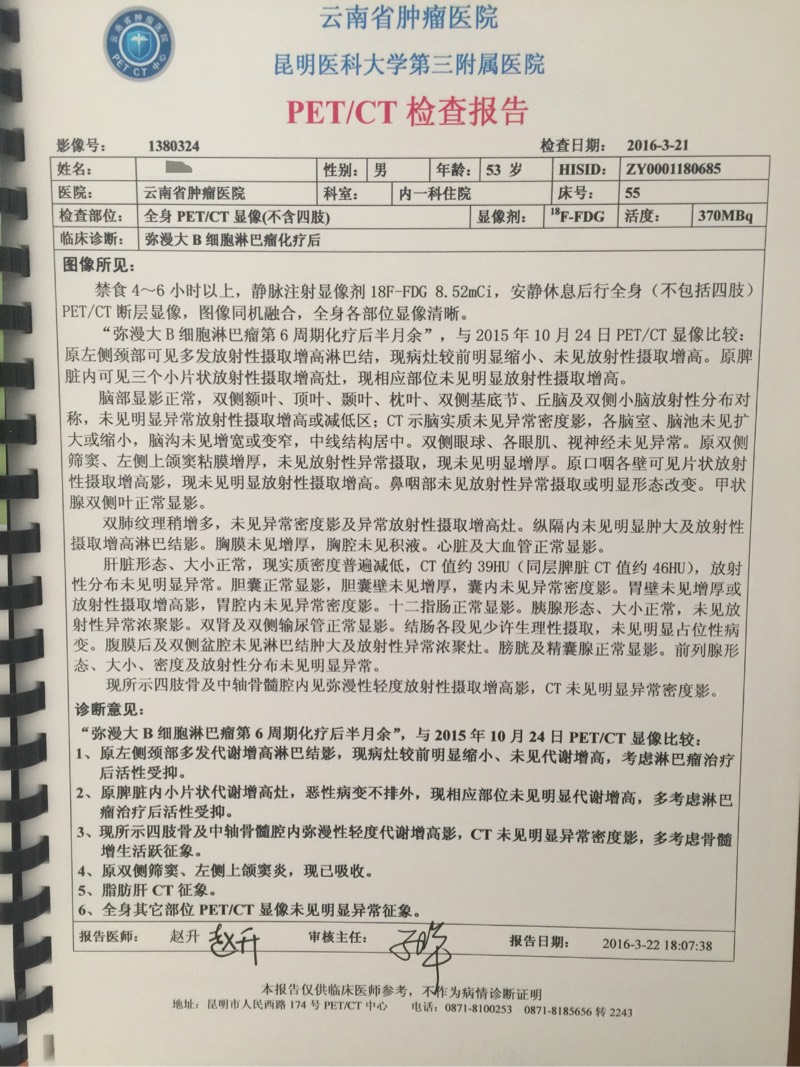 云南省肿瘤医院
PET CT 中心
云南省肿瘤医院
昆明医科大学第三附属医院
PET/CT 检查报告
影像号： 1380324 检查日期： 2016-3-21
姓名： 性别： 男 年龄： 53 岁 HISID： ZY0001180685
医院： 云南省肿瘤医院 科室： 内一科住院 床号： 55
检查部位： 全身 PET/CT 显像(不含四肢) 显像剂： 18F-FDG 活度： 370MBq
临床诊断： 弥漫大 B 细胞淋巴瘤化疗后
图像所见：
禁食 4～6 小时以上，静脉注射显像剂 18F-FDG 8.52mCi，安静休息后行全身（不包括四肢）
PET/CT 断层显像，图像同机融合，全身各部位显像清晰。
“弥漫大 B 细胞淋巴瘤第 6 周期化疗后半月余”，与 2015 年 10 月 24 日 PET/CT 显像比较：
原左侧颈部可见多发放射性摄取增高淋巴结，现病灶较前明显缩小、未见放射性摄取增高。原脾
脏内可见三个小片状放射性摄取增高灶，现相应部位未见明显放射性摄取增高。
脑部显影正常，双侧额叶、顶叶、颞叶、枕叶、双侧基底节、丘脑及双侧小脑放射性分布对
称，未见明显异常放射性摄取增高或减低区；CT 示脑实质未见异常密度影，各脑室、脑池未见扩
大或缩小，脑沟未见增宽或变窄，中线结构居中。双侧眼球、各眼肌、视神经未见异常。原双侧
筛窦、左侧上颌窦粘膜增厚，未见放射性异常摄取，现未见明显增厚。原口咽各壁可见片状放射
性摄取增高影，现未见明显放射性摄取增高。鼻咽部未见放射性异常摄取或明显形态改变。甲状
腺双侧叶正常显影。
双肺纹理稍增多，未见异常密度影及异常放射性摄取增高灶。纵隔内未见明显肿大及放射性
摄取增高淋巴结影。胸膜未见增厚，胸腔未见积液。心脏及大血管正常显影。
肝脏形态、大小正常，现实质密度普遍减低，CT 值约 39HU（同层脾脏 CT 值约 46HU），放射
性分布未见明显异常。胆囊正常显影，胆囊壁未见增厚，囊内未见异常密度影。胃壁未见增厚或
放射性摄取增高影，胃腔内未见异常密度影。十二指肠正常显影。胰腺形态、大小正常，未见放
射性异常浓聚影。双肾及双侧输尿管正常显影。结肠各段见少许生理性摄取，未见明显占位性病
变。腹膜后及双侧盆腔未见淋巴结肿大及放射性异常浓聚灶。膀胱及精囊腺正常显影。前列腺形
态、大小、密度及放射性分布未见明显异常。
现所示四肢骨及中轴骨髓腔内见弥漫性轻度放射性摄取增高影，CT 未见明显异常密度影。
诊断意见：
“弥漫大 B 细胞淋巴瘤第 6 周期化疗后半月余”，与 2015 年 10 月 24 日 PET/CT 显像比较：
1、原左侧颈部多发代谢增高淋巴结影，现病灶较前明显缩小、未见代谢增高，考虑淋巴瘤治疗
后活性受抑。
2、原脾脏内小片状代谢增高灶，恶性病变不排外，现相应部位未见明显代谢增高，多考虑淋巴
瘤治疗后活性受抑。
3、现所示四肢骨及中轴骨髓腔内弥漫性轻度代谢增高影，CT 未见明显异常密度影，多考虑骨髓
增生活跃征象。
4、原双侧筛窦、左侧上颌窦炎，现已吸收。
5、脂肪肝 CT 征象。
6、全身其它部位 PET/CT 显像未见明显异常征象。
报告医师： 赵升 赵升 审核主任： 报告日期： 2016-3-22 18:07:38
本报告仅供临床医师参考，不作为病情诊断证明
地址：昆明市人民西路 174 号 PET/CT 中心 电话：0871-8100253 0871-8185656 转 2243